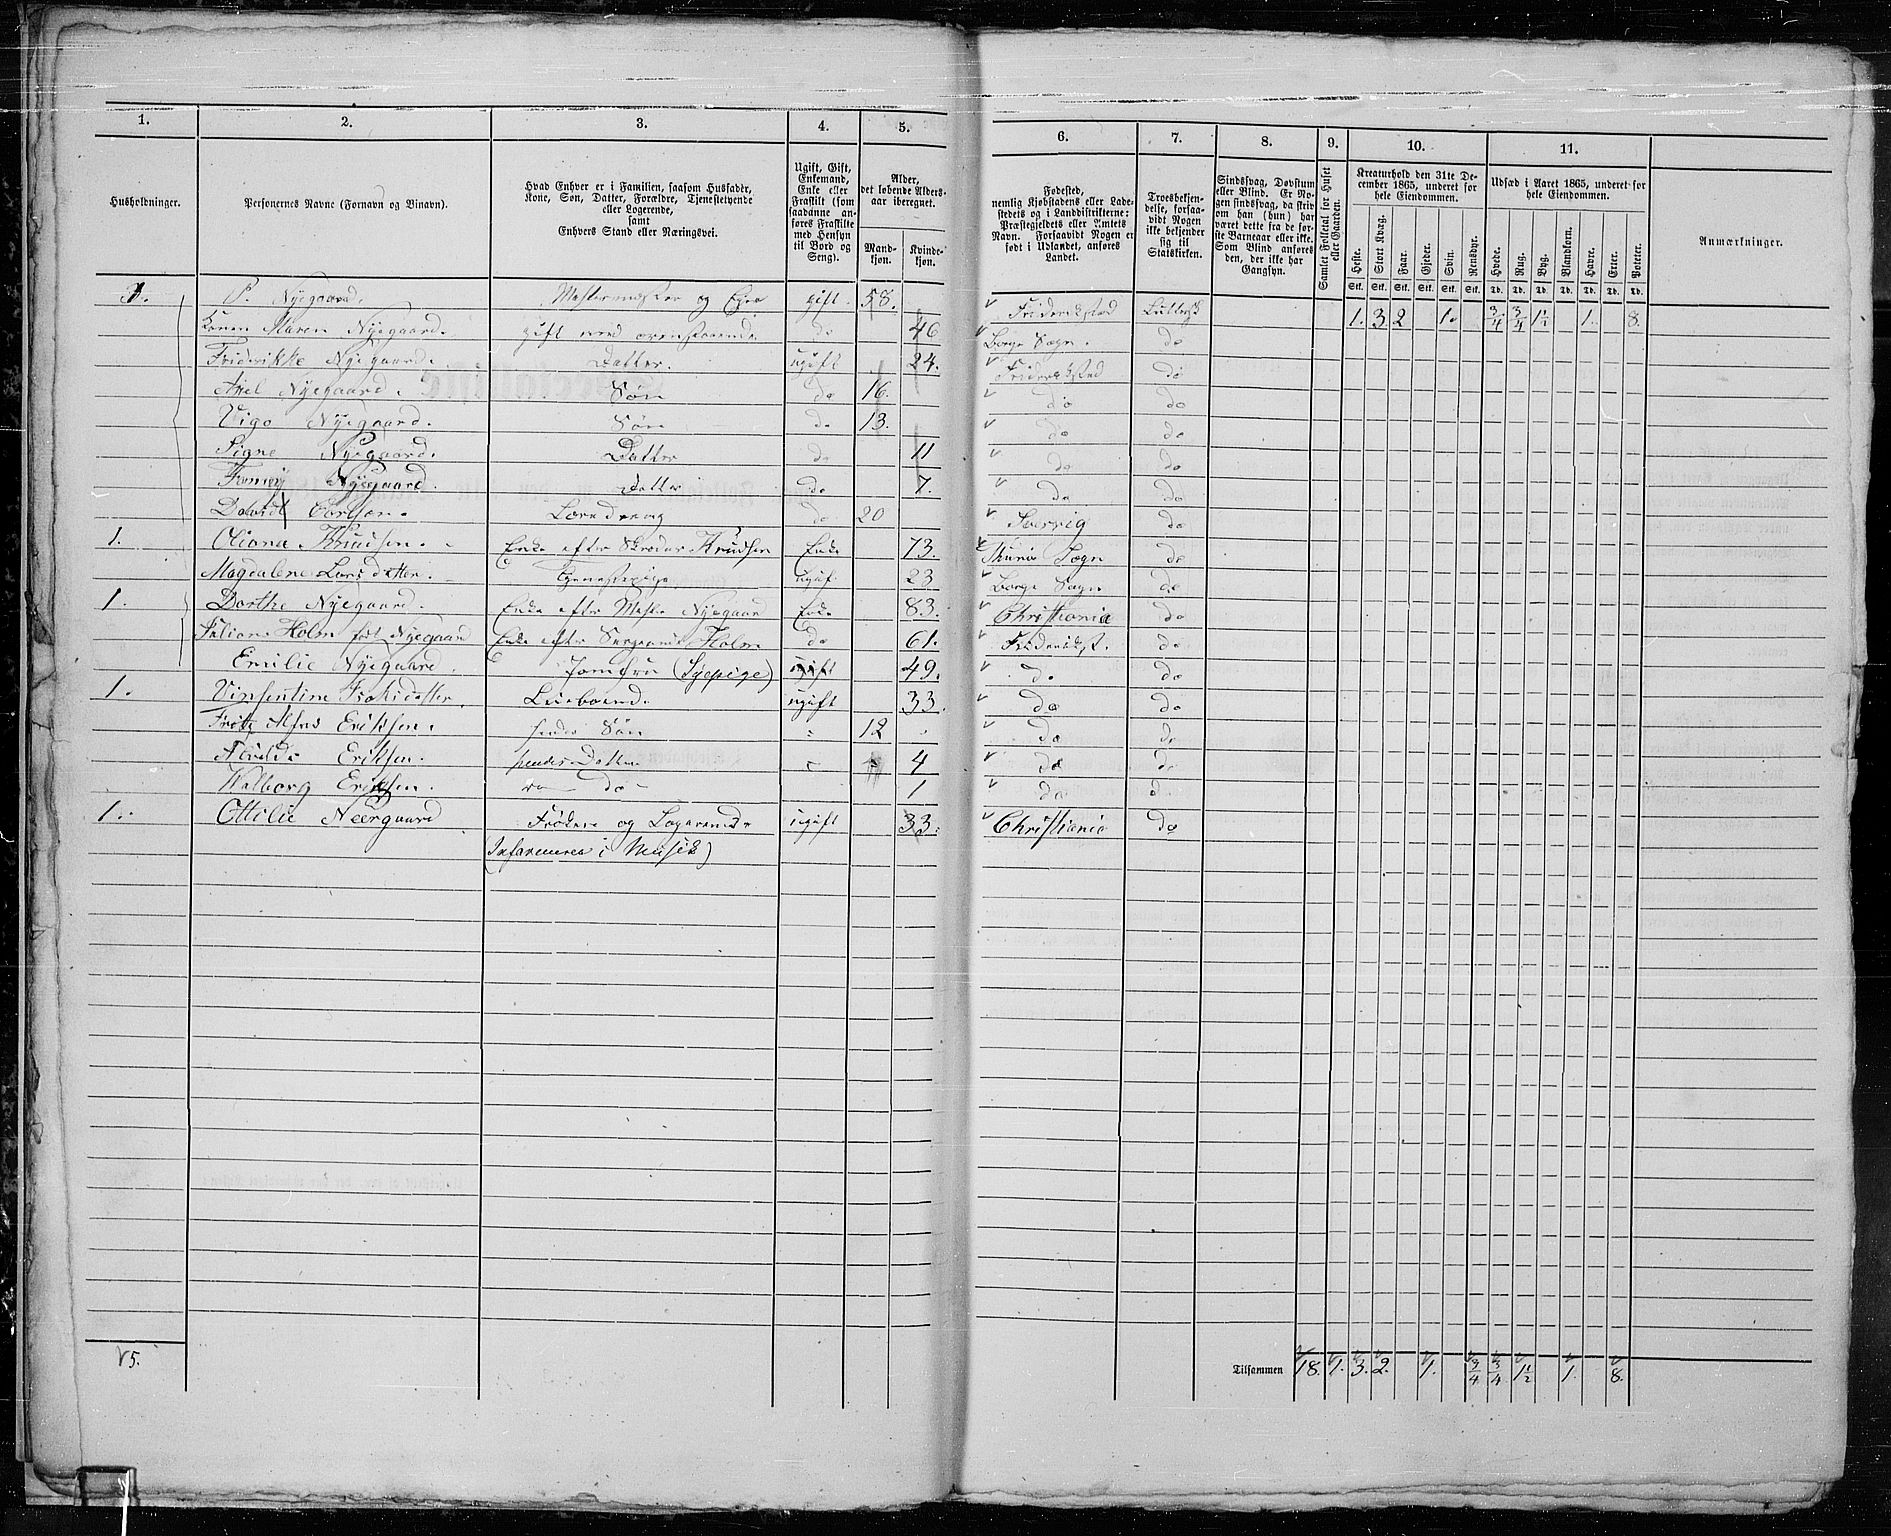 1. 2. 3. 4. 5. 6. 7. 8. 9. 10. 11.
Husholdninger.
Personernes Navne (Fornavn og Binavn).
Hvad Enhver er i Familien, saasom Husfader,
Kone, Søn, Datter, Forældre, Tjenestetyende
eller Logerende,
samt
Enhvers Stand eller Næringsvei.
Ugift, Gift,
Enkemand,
Enke eller
Fraskilt (som
saadanne an-
føres Fraskilte
med Hensyn
til Bord og
Seng).
Alder,
det løbende Alders-
aar iberegnet.
Mand-
kjøn.
Kvinde-
kjøn.
Fødested,
nemlig Kjøbstadens eller Lade-
stedets og i Landdistrikterne:
Præstegjeldets eller Amtets
Navn. Forsaavidt Nogen er
født i Udlandet, anføres
Landet.
Troesbekjen-
delse, forsaa-
vidt Nogen
ikke bekjender
sig til
Statskirken.
Sindssvag, Døvstum
eller Blind. Er No-
gen sindssvag, da skriv
om han (hun) har
været dette fra de før-
ste Barneaar eller ikke.
Som Blind anføres
den, der ikke har
Gangsyn.
Samlet Folketal for Huset
eller Gaarden.
Kreaturhold den 31te De-
cember 1865, underet for
hele Eiendommen.
Heste. Stort Kvæg. Faar. Gjeder. Svin. Rensdyr.
Stk. Stk. Stk. Stk. Stk. Stk.
Udsæd i Aaret 1865, underet for
hele Eiendommen.
Hvede. Rug. Byg. Blandkorn. Havre. Erter. Poteter.
Td. Td. Td. Td. Td. Td. Td.
Anmærkninger.
1. P. Nyegaard. og gift. 58. Frideriksstad Luthersk 1. 3 2 1. 3/4 3/4 1 1/2 1. 8.
Konen Maren Nyegaard. gift med ovenstaaende do 46 Borge Sogn. do
Friderikke Nyegaard. Datter. ugift 24. Frideriksstad do
Axel Nyegaard. Søn do 16. do do
Vigo Nyegaard. Søn do 13. do do
Signe Nyegaard. Datter do 11 do do
Fanny Nyegaard. Datter do 7. do do
David Carlsen. do 20 Sverrig do
1. Oliana Knudsen. Enke efter Knudsen Enke 73. Sogn do
Magdalene Larsdatter. Tjenestepige ugif. 23 Borge Sogn do
1. Dorthe Nyegaard. Enke efter Nyegaard Enke 83. Christiania do
Juliane Holm født Nyegaard Enke efter Holm do 61. Frideriksst. do
Emilie Nyegaard. Jomfru (Syepige) ugift 49. do do
1. Vinsentine ugift 33. do do
Fritz Alfred Eriksen. hendes Søn 12 do do
Eriksen. hendes Datter 4 do do
Walborg Eriksen. do 1 do do
1. Ottilie Neergaard Frøken og Logerende ugift 33. Christiania do
(Informerer i Musik)
5. Tilsammen 18. 1. 3. 2. 1. 3/4 3/4 1 1/2 1. 8.